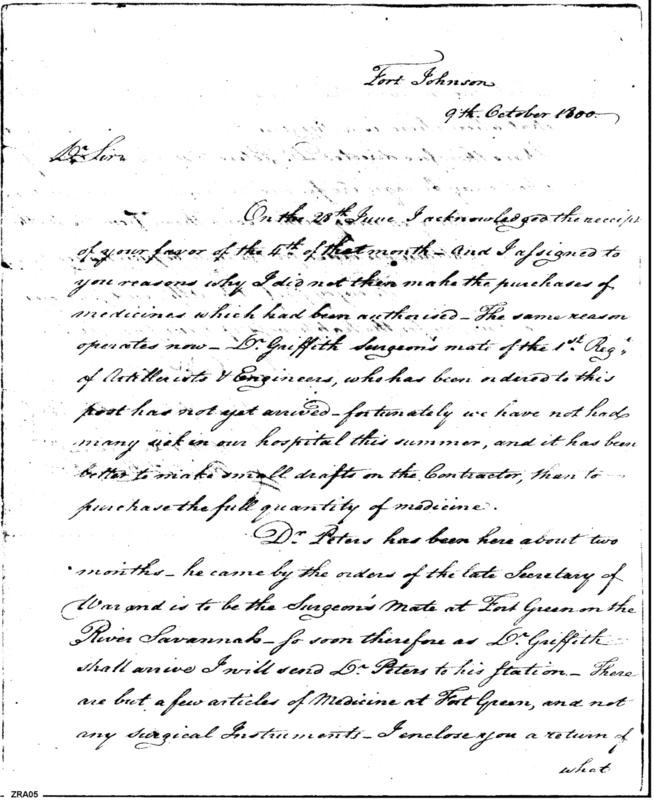 Fort Johnson
9th. October 1800.
Dr. Sir
On the 28th. June I acknowledged the receipt
of your favor of the 4th. of that month – and I assigned to
you reasons why I did not then make the purchases of
medicines which had been authorised – The same reason
operates now – Dr. Griffith Surgeon's mate of the 1st. Regt.
of Artillerists & Engineers, who has been ordered to this
post has not yet arrived – fortunately we have not had
many sick in our hospital this summer, and it has been
better to make small drafts on the Contractor, than to
purchase the full quantity of medicine.
Dr. Peters has been here about two
months – he came by the orders of the late Secretary of
War and is to be the Surgeon's Mate at Fort Green on the
River Savannah – So soon therefore as Dr. Griffith
shall arrive I will send Dr. Peters to his station – There
are but a few articles of Medicine at Fort Green, and not
any surgical Instruments – I enclose you a return of
what
ZRA05